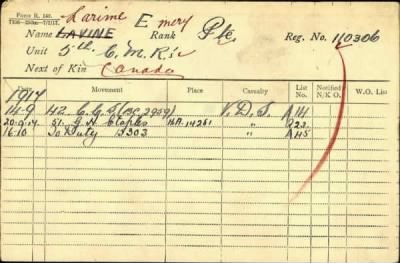 Form R. 149.
Larime Emery
Name LAVINE Rank Pte. Reg. No. 110306
Unit 5th C.M.R's
Next of Kin Canada
Date Movement Place Casualty List No. Notified N/K O. W.O. List
1917
14-9 42 C.C.S (3C 2959) V.D.S. A14
20-9-17 51. G.H. Etaples HA 14251 " B23
16-10 To Duty B303 " A45